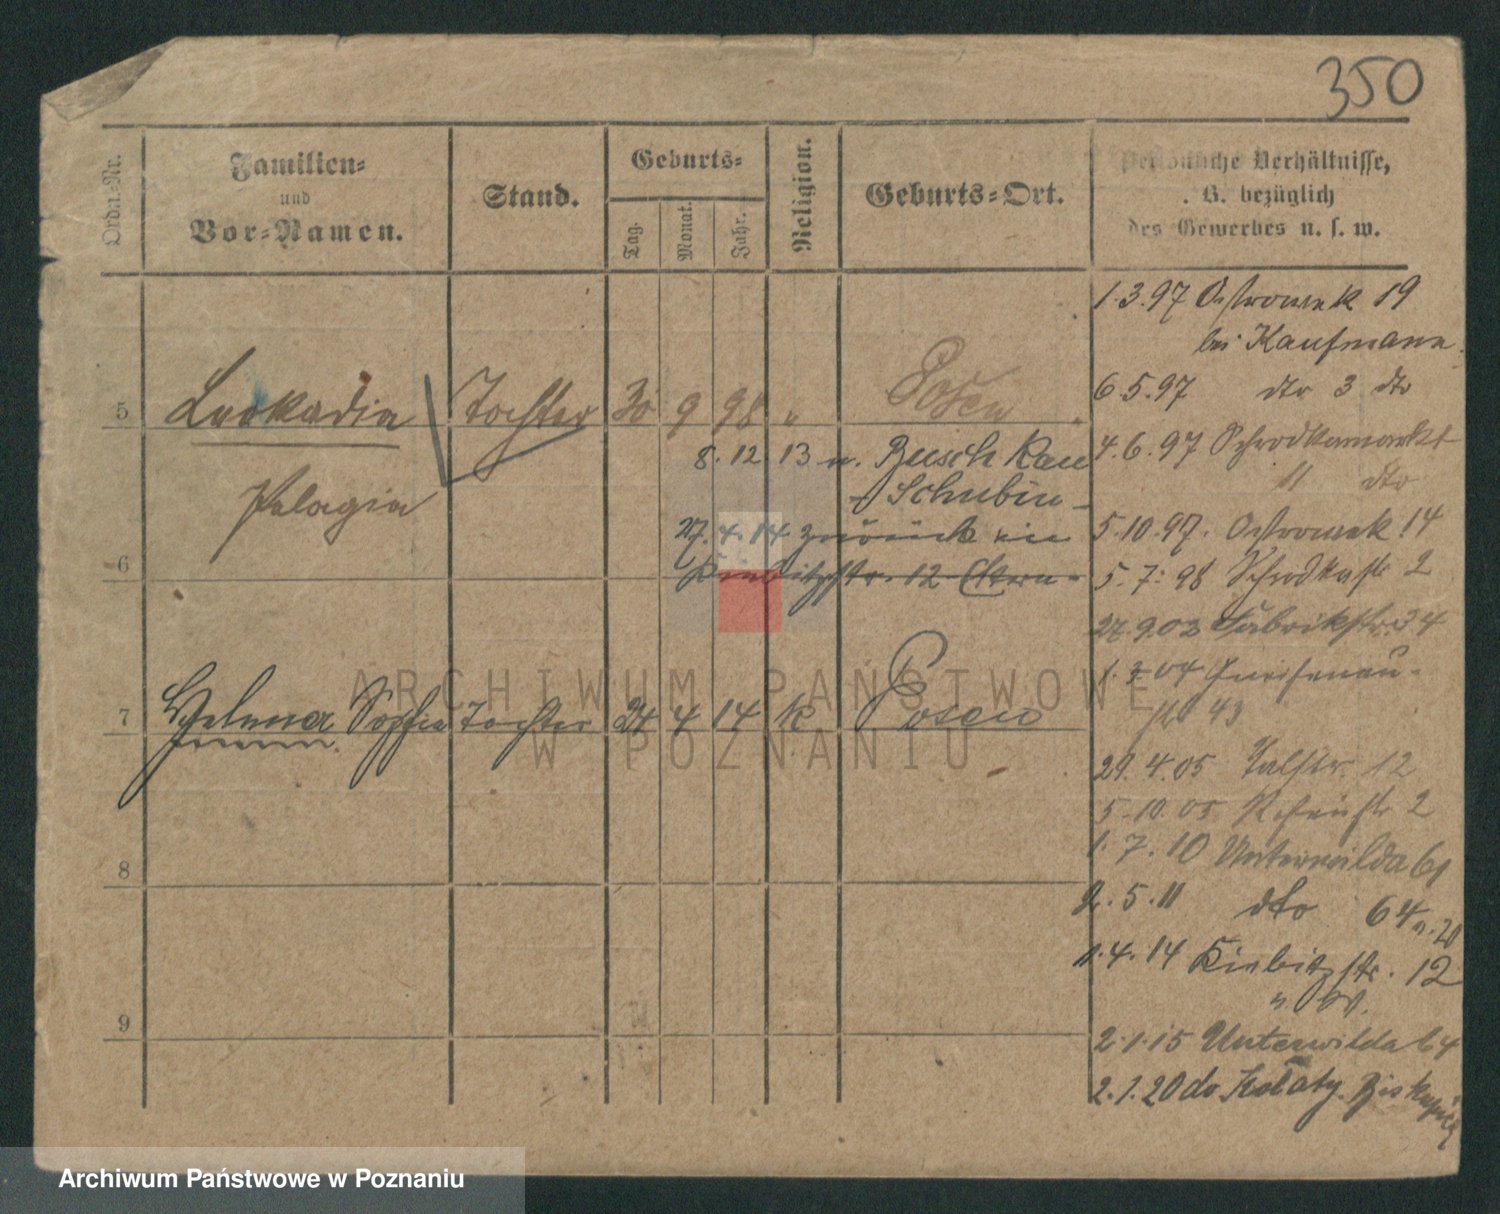 350
Ordn.-Nr.
Familien-
und
Vor-Namen.
Stand.
Geburts-
Tag.
Monat.
Jahr.
Religion.
Geburts-Ort.
Persönliche Verhältnisse,
. B. bezüglich
des Gewerbes u. s. w.
1.3.97 Ostrowek 19
bei Kaufmann.
6.5.97 dto 3 dto
5 Leokadia Tochter 30 9 98 " Posen "
4.6.97 Schrodkamarkt
11 dto
8.12.13 n. Busch Kau
- Schubin -
Pelagia
27.4.14 zurück in
Kiebitzstr. 12 Eltern -
5.10.97. Ostrowek 14
6
5.7.98 Schrodkastr 2
27.9.02 Fabrikstr. 34
1.3.04 Gneisenau-
str 43
7 Helena Sofie Tochter 24 4 14 k Posen
29.4.05 Talstr. 12
5.10.05 Rosenstr 2
1.7.10 Unterwilda 61
8
2.5.11 dto 64 n. 20
1.4.14 Kiebitzstr. 12
9
2.1.15 Unterwilda 64
2.1.20 do Kołaty. Biskupice
ARCHIWUM PAŃSTWOWE
W POZNANIU
Archiwum Państwowe w Poznaniu